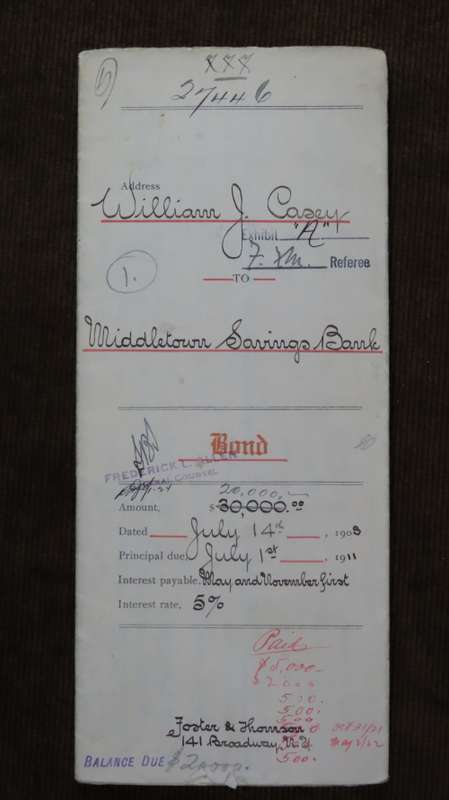 5
XXX
27446
Address
William J. Casey
Exhibit "A"
Referee
1.
TO
Middletown Savings Bank
Bond
FREDERICK L. ALLEN
GENERAL COUNSEL
20,000.—
Amount, $30,000.00
Dated July 14th, 1908
Principal due, July 1st, 1911
Interest payable, May and November first
Interest rate, 5%
Paid
$5,000—
$2000
500.
500.
500
Foster & Thomson
141 Broadway, N.Y.
500.
BALANCE DUE $20000.